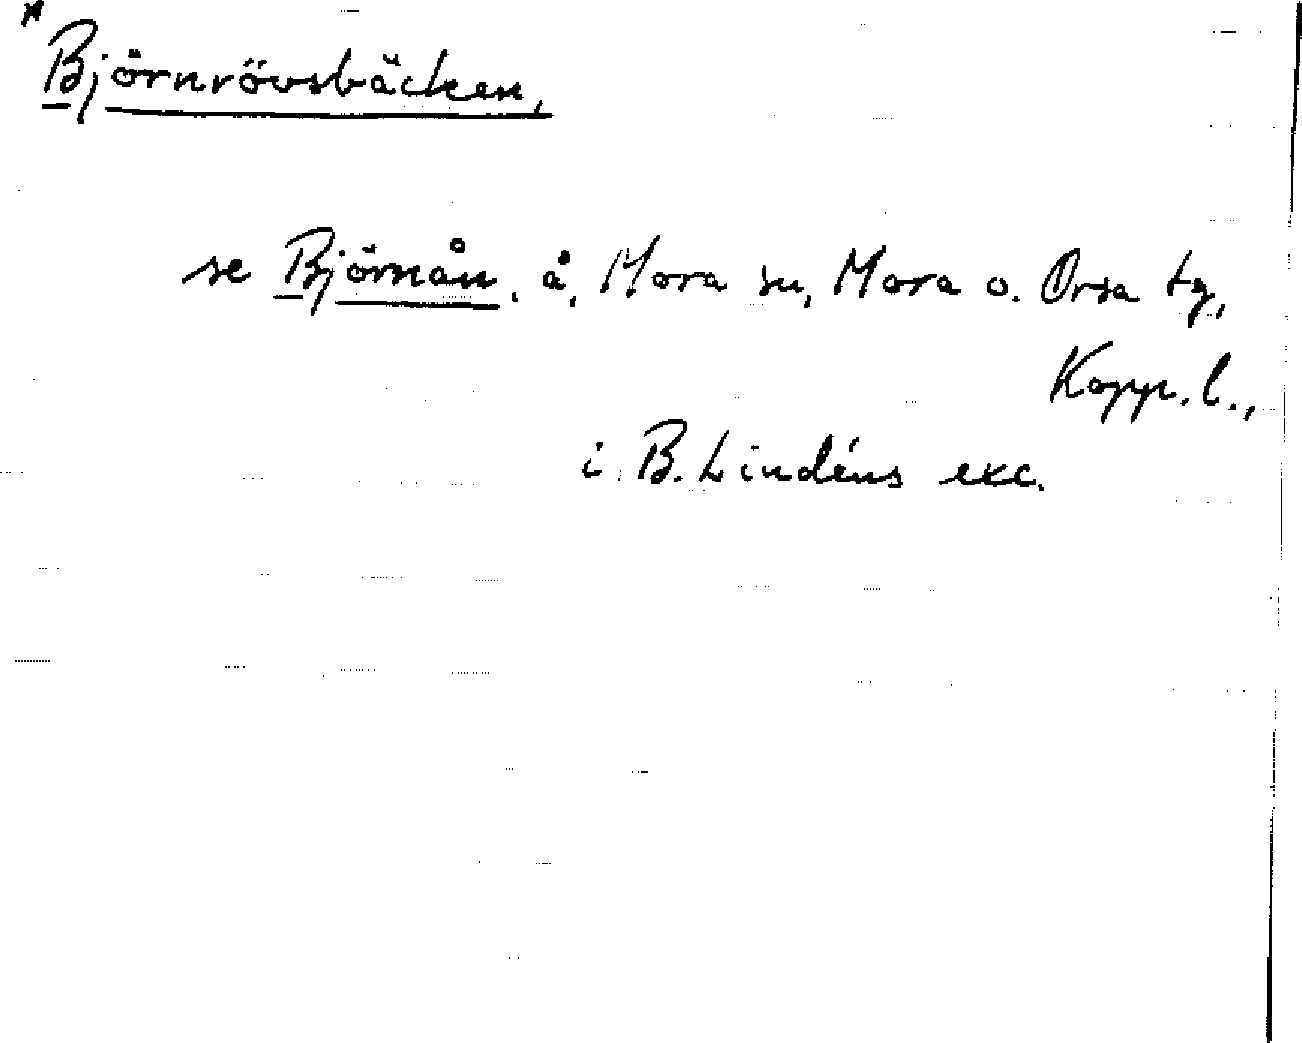 *Björnrövsbäcken,
se Björnån, å, Mora sn, Mora o. Orsa tg,
Kopp. l.,
i B. Lindéns exc.